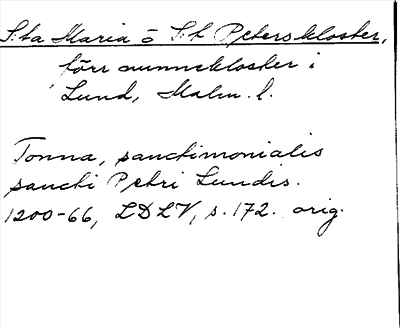 S:ta Maria o S:t Peterskloster,
förr nunnekloster i
Lund, Malm. l.
Tonna, sanctimonialis
sancti Petri Lundis.
1200-66, LDLV, s. 172. orig.